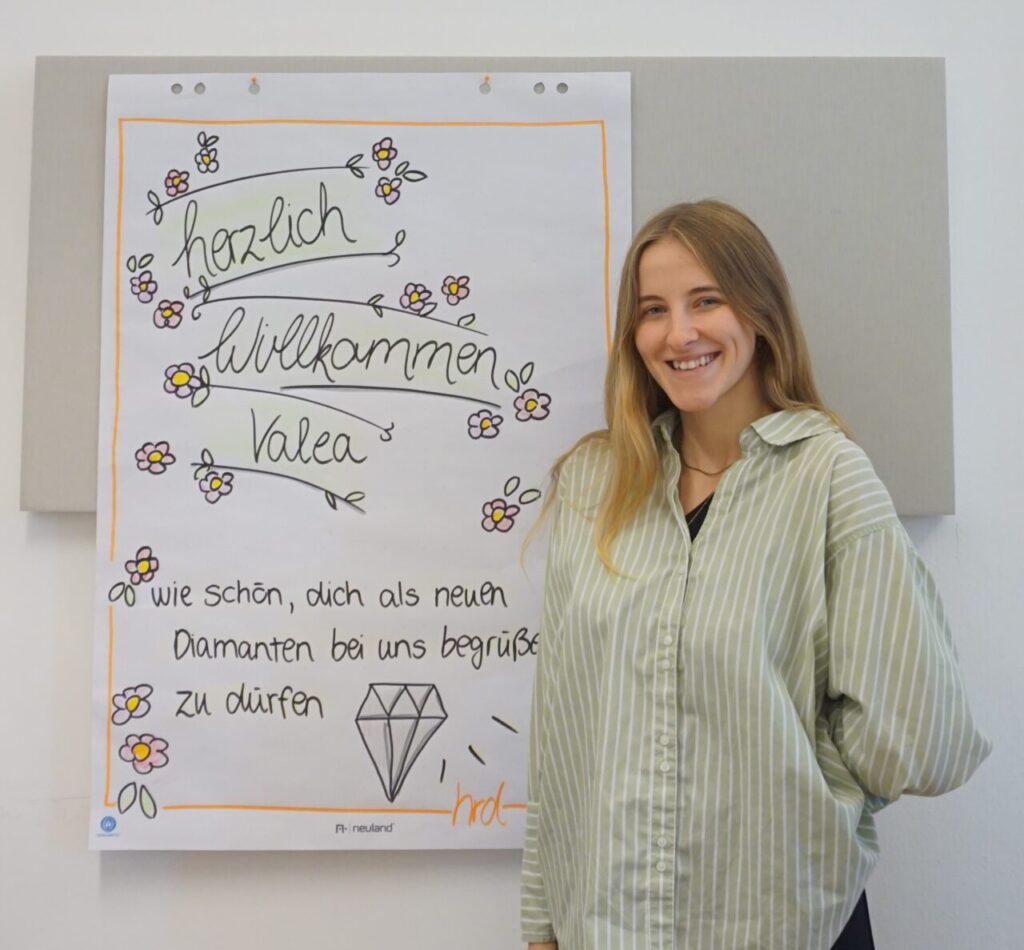 herzlich
Willkommen
Valea
wie schön, dich als neuen
Diamanten bei uns begrüße
zu dürfen
hrd
neuland